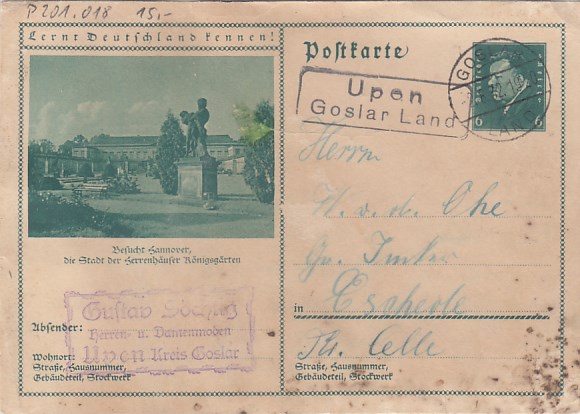 P201.018 15,-
Lernt Deutschland kennen!
Postkarte
GOS
LAND
6 6
Upen
Goslar Land
Herrn
H. v. d. Ohe
Gr.
Escheде
Kr. Celle
Besucht Hannover,
die Stadt der Herrenhäuser Königsgärten
Absender:
Wohnort:
Straße, Hausnummer,
Gebäudeteil, Stockwerk
Gustav
Herren- u. Damenmoden
Upen Kreis Goslar
in
Straße, Hausnummer,
Gebäudeteil, Stockwerk